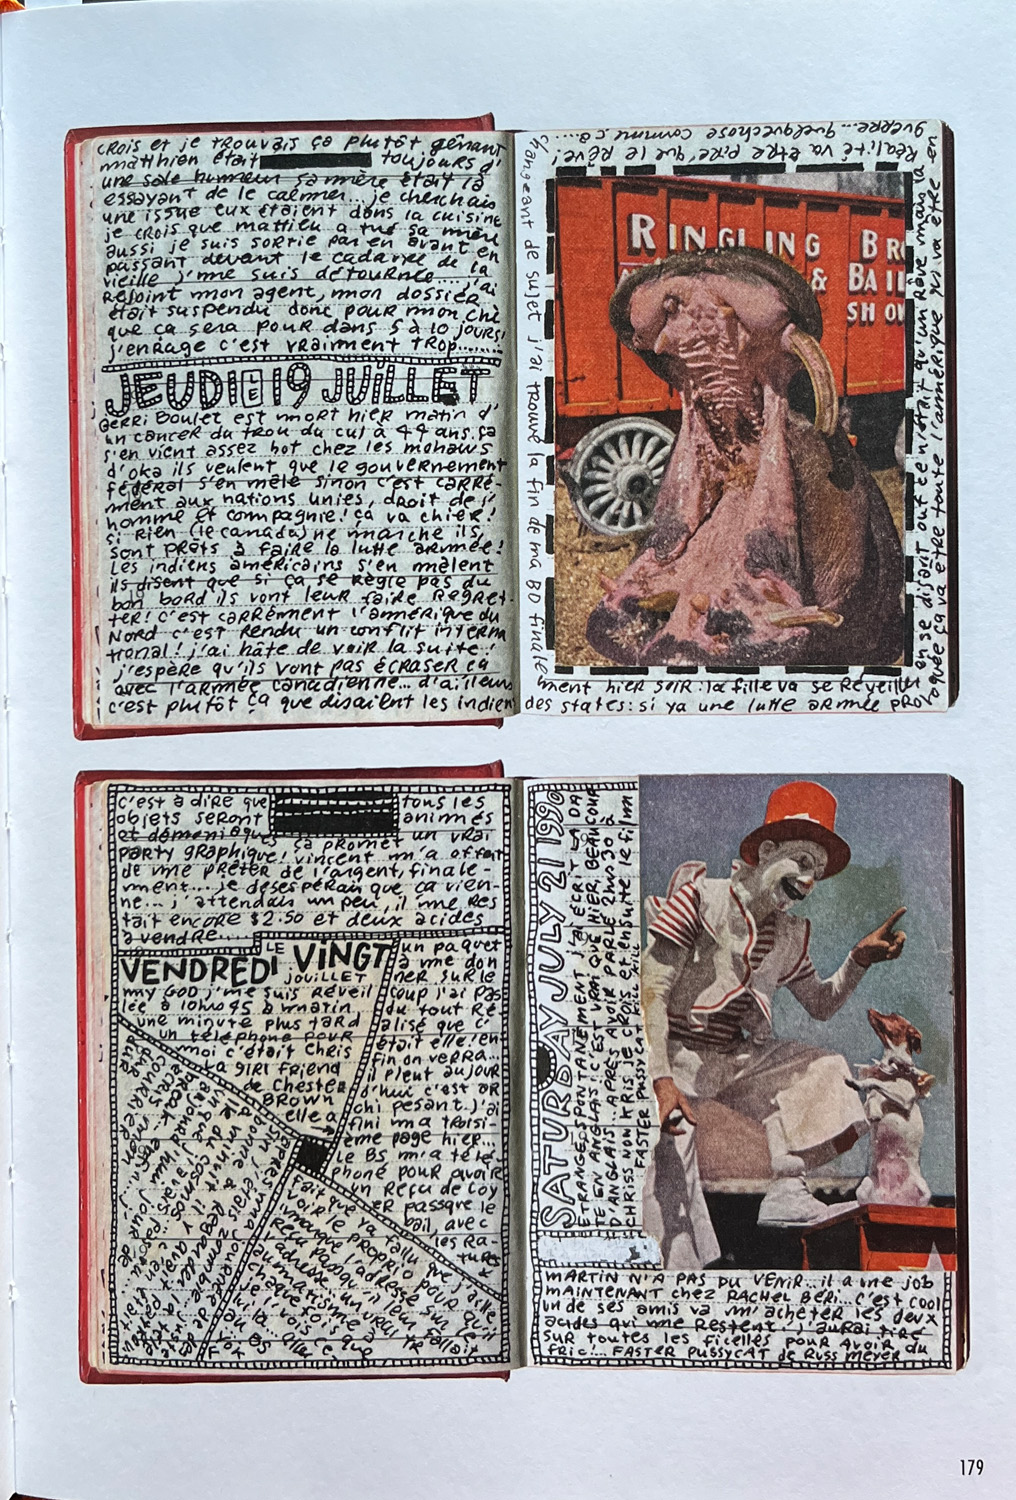 crois et je trouvais ça plutôt gênant
matthieu était toujours d'
une sale humeur sa mère était là
essayant de le calmer... je cherchais
une issue eux étaient dans la cuisine
je crois que mattieu a tué sa mère
aussi je suis sortie par en avant en
passant devant le cadavre de la
vieille j'me suis détournée.... j'ai
rejoint mon agent, mon dossier
était suspendu donc pour mon chè
que ça sera pour dans 5 à 10 jours!
j'enrage c'est vraiment trop........
JEUDI 19 JUILLET
Gerri Boulet est mort hier matin d'
un cancer du trou du cul à 44 ans. ça
s'en vient assez hot chez les mohaws
d'oka ils veulent que le gouvernement
fédéral s'en mêle sinon c'est carré-
ment aux nations unies, droit de l'
homme et compagnie! ça va chier!
si rien (le canada) ne marche ils
sont prêts à faire la lutte armée!
Les indiens américains s'en mêlent
ils disent que si ça se règle pas du
bon bord ils vont leur faire regret-
ter! c'est carrément l'amérique du
Nord c'est rendu un conflit interna
tional! j'ai hâte de voir la suite!
j'espère qu'ils vont pas écraser ça
avec l'armée canadienne... d'ailleurs
c'est plutôt ça que disaient les indiens
changeant de sujet j'ai trouvé la fin de ma BD finale
ment hier soir: la fille va se réveiller
en se disant ouf ce n'était qu'un rêve mais la
réalité va être pire que le rêve!
des states: si ya une lutte armée prov
oquée ça va être toute l'amérique qui va être en
guerre... quelquechose comme ça....
RINGLING BRO
& BAIL
SHOW
c'est à dire que tous les
objets seront animés
et démoniaques ça promet un vrai
party graphique! vincent m'a offert
de me prêter de l'argent, finale-
ment.... je désespérais que ça vien-
ne... j'attendais un peu, il me res
tait encore $2.50 et deux acides
à vendre.....
LE VINGT
VENDREDI
jouillet
my GOD j'me suis réveil
lée à 10h45 à matin
une minute plus tard
un téléphone pour
moi c'était chris
la girl friend
de Chester
BROWN
elle a
un paquet
à me don
ner sur le
coup j'ai pas
du tout ré
alisé que c'
était elle! en
fin on verra...
il pleut aujour
d'hui c'est ar
chi pesant. j'ai
fini ma troisi-
ème page hier...
le BS m'a télé
phoné pour avoir
un reçu de loy
er passque le
bail, avec
les ra-
tures
fait que ya fallu que j'aille
voir le proprio pour qu'il
SATURDAY JULY 21 1990
étrange, spontanément j'ai écrit la da
te en anglais! c'est vrai que hier, beaucoup
d'anglais.. après avoir parlé 2hrs30 à
chriss non Kris je crois et ensuite le film
FASTER PUSSYCAT KILL KILL
MARTIN N'A PAS DU VENIR... il a une job
maintenant chez RACHEL BERI... c'est cool
un de ses amis va m'acheter les deux
acides qui me restent j'aurai tiré
sur toutes les ficelles pour avoir du
fric!... FASTER PUSSYCAT de RUSS MEYER
179